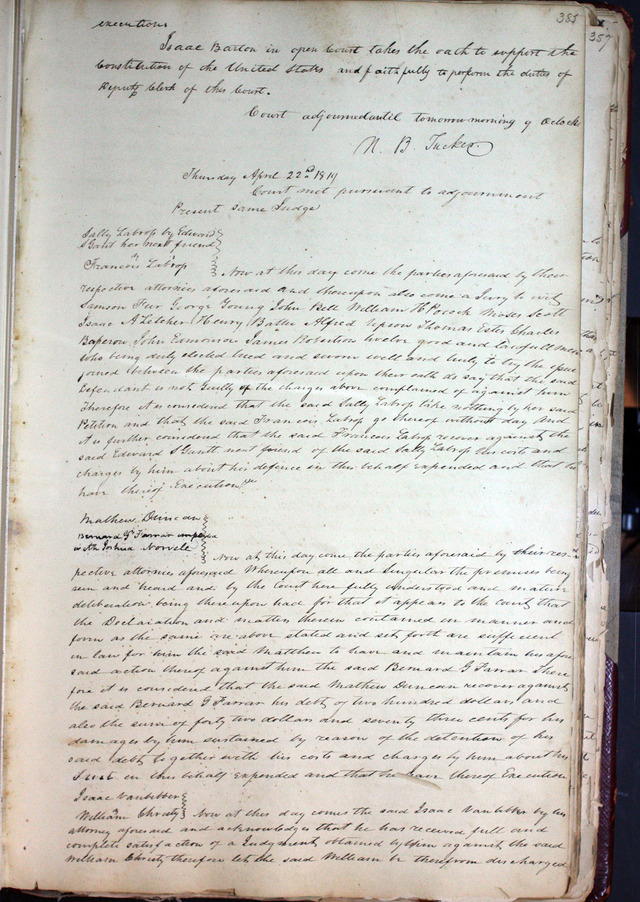 385
357
executions
Isaac Barton in open Court takes the oath to support the
Constitution of the United States and faithfully to perform the duties of
Deputy Clerk of this Court.
Court adjourned until tomorrow morning 9 Oclock
N. B. Tucker
Thursday April 22nd 1819
Court met pursuant to adjournment
Present same Judge
Sally Labrop by Edward
S Gantt her next friend
vs
Francois Labrop
Now at this day come the parties aforesaid by their
respective attornies aforesaid and thereupon also come a Jury to wit
Samson Fur George Young John Bell William R Pocock Moses Scott
Isaac A Letcher Henry Battu Alfred Upson Thomas Estes Charles
John Edmonson James Robertson twelve good and lawfull men
who being duly elected tried and sworn well and truly to try the issue
joined between the parties aforesaid upon their oath do say that the said
Defendant is not Guilty of the charges above complained of against him
Therefore it is considered that the said Sally Labrop take nothing by her said
Petition and that the said Francois Labrop go thereof without day And
it is further considered that the said Francois Labrop recover against the
said Edward S Gantt next friend of the said Sally Labrop his costs and
charges by him about his defence in this behalf expended and that he
have thereof Execution
Mathew Duncan
vs
Bernard G Farrar impleaded
with Joshua Norvele
Now at this day come the parties aforesaid by their res-
pective attornies aforesaid Whereupon all and singular the premises being
seen and heard and by the Court here fully understood and mature
deliberation being thereupon had for that it appears to the court that
the Declaration and matters therein contained in manner and
form as the same are above stated and set forth are sufficient
in law for him the said Matthew to have and maintain his afore
said action thereof against him the said Bernard G Farrar There
fore it is considered that the said Mathew Duncan recover against
the said Bernard G Farrar his debt of two hundred dollars and
also the sum of forty two dollars and seventy three cents for his
damages by him sustained by reason of the detention of his
said debt together with his costs and charges by him about his
Suit in this behalf expended and that he have thereof Execution
Isaac Vanbibber
vs
William Christy
Now at this day comes the said Isaac Vanbibber by his
attorney aforesaid and acknowledges that he has received full and
complete satisfaction of a Judgment obtained by him against the said
William Christy therefore let the said William be therefrom discharged